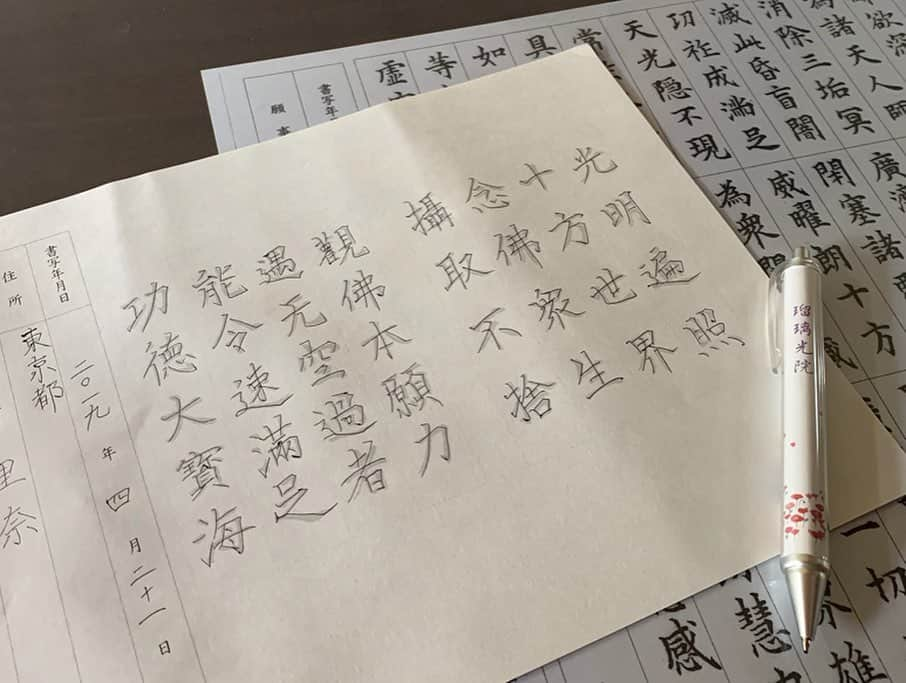 欲深
為諸天人師
消除三垢冥
廣濟
滅此昏盲闇
閉塞諸
功祚成満足
威曜朗十方
天光隠不現
為衆開
常
具
如
等
虚空
書写年
願事
一切
雄
慧
感
光明遍照
十方世界
念佛衆生
攝取不捨
觀佛本願力
遇无空過者
能令速滿足
功德大寶海
書写年月日
二〇一九年四月二十一日
住所
東京都
里奈
瑠璃光院